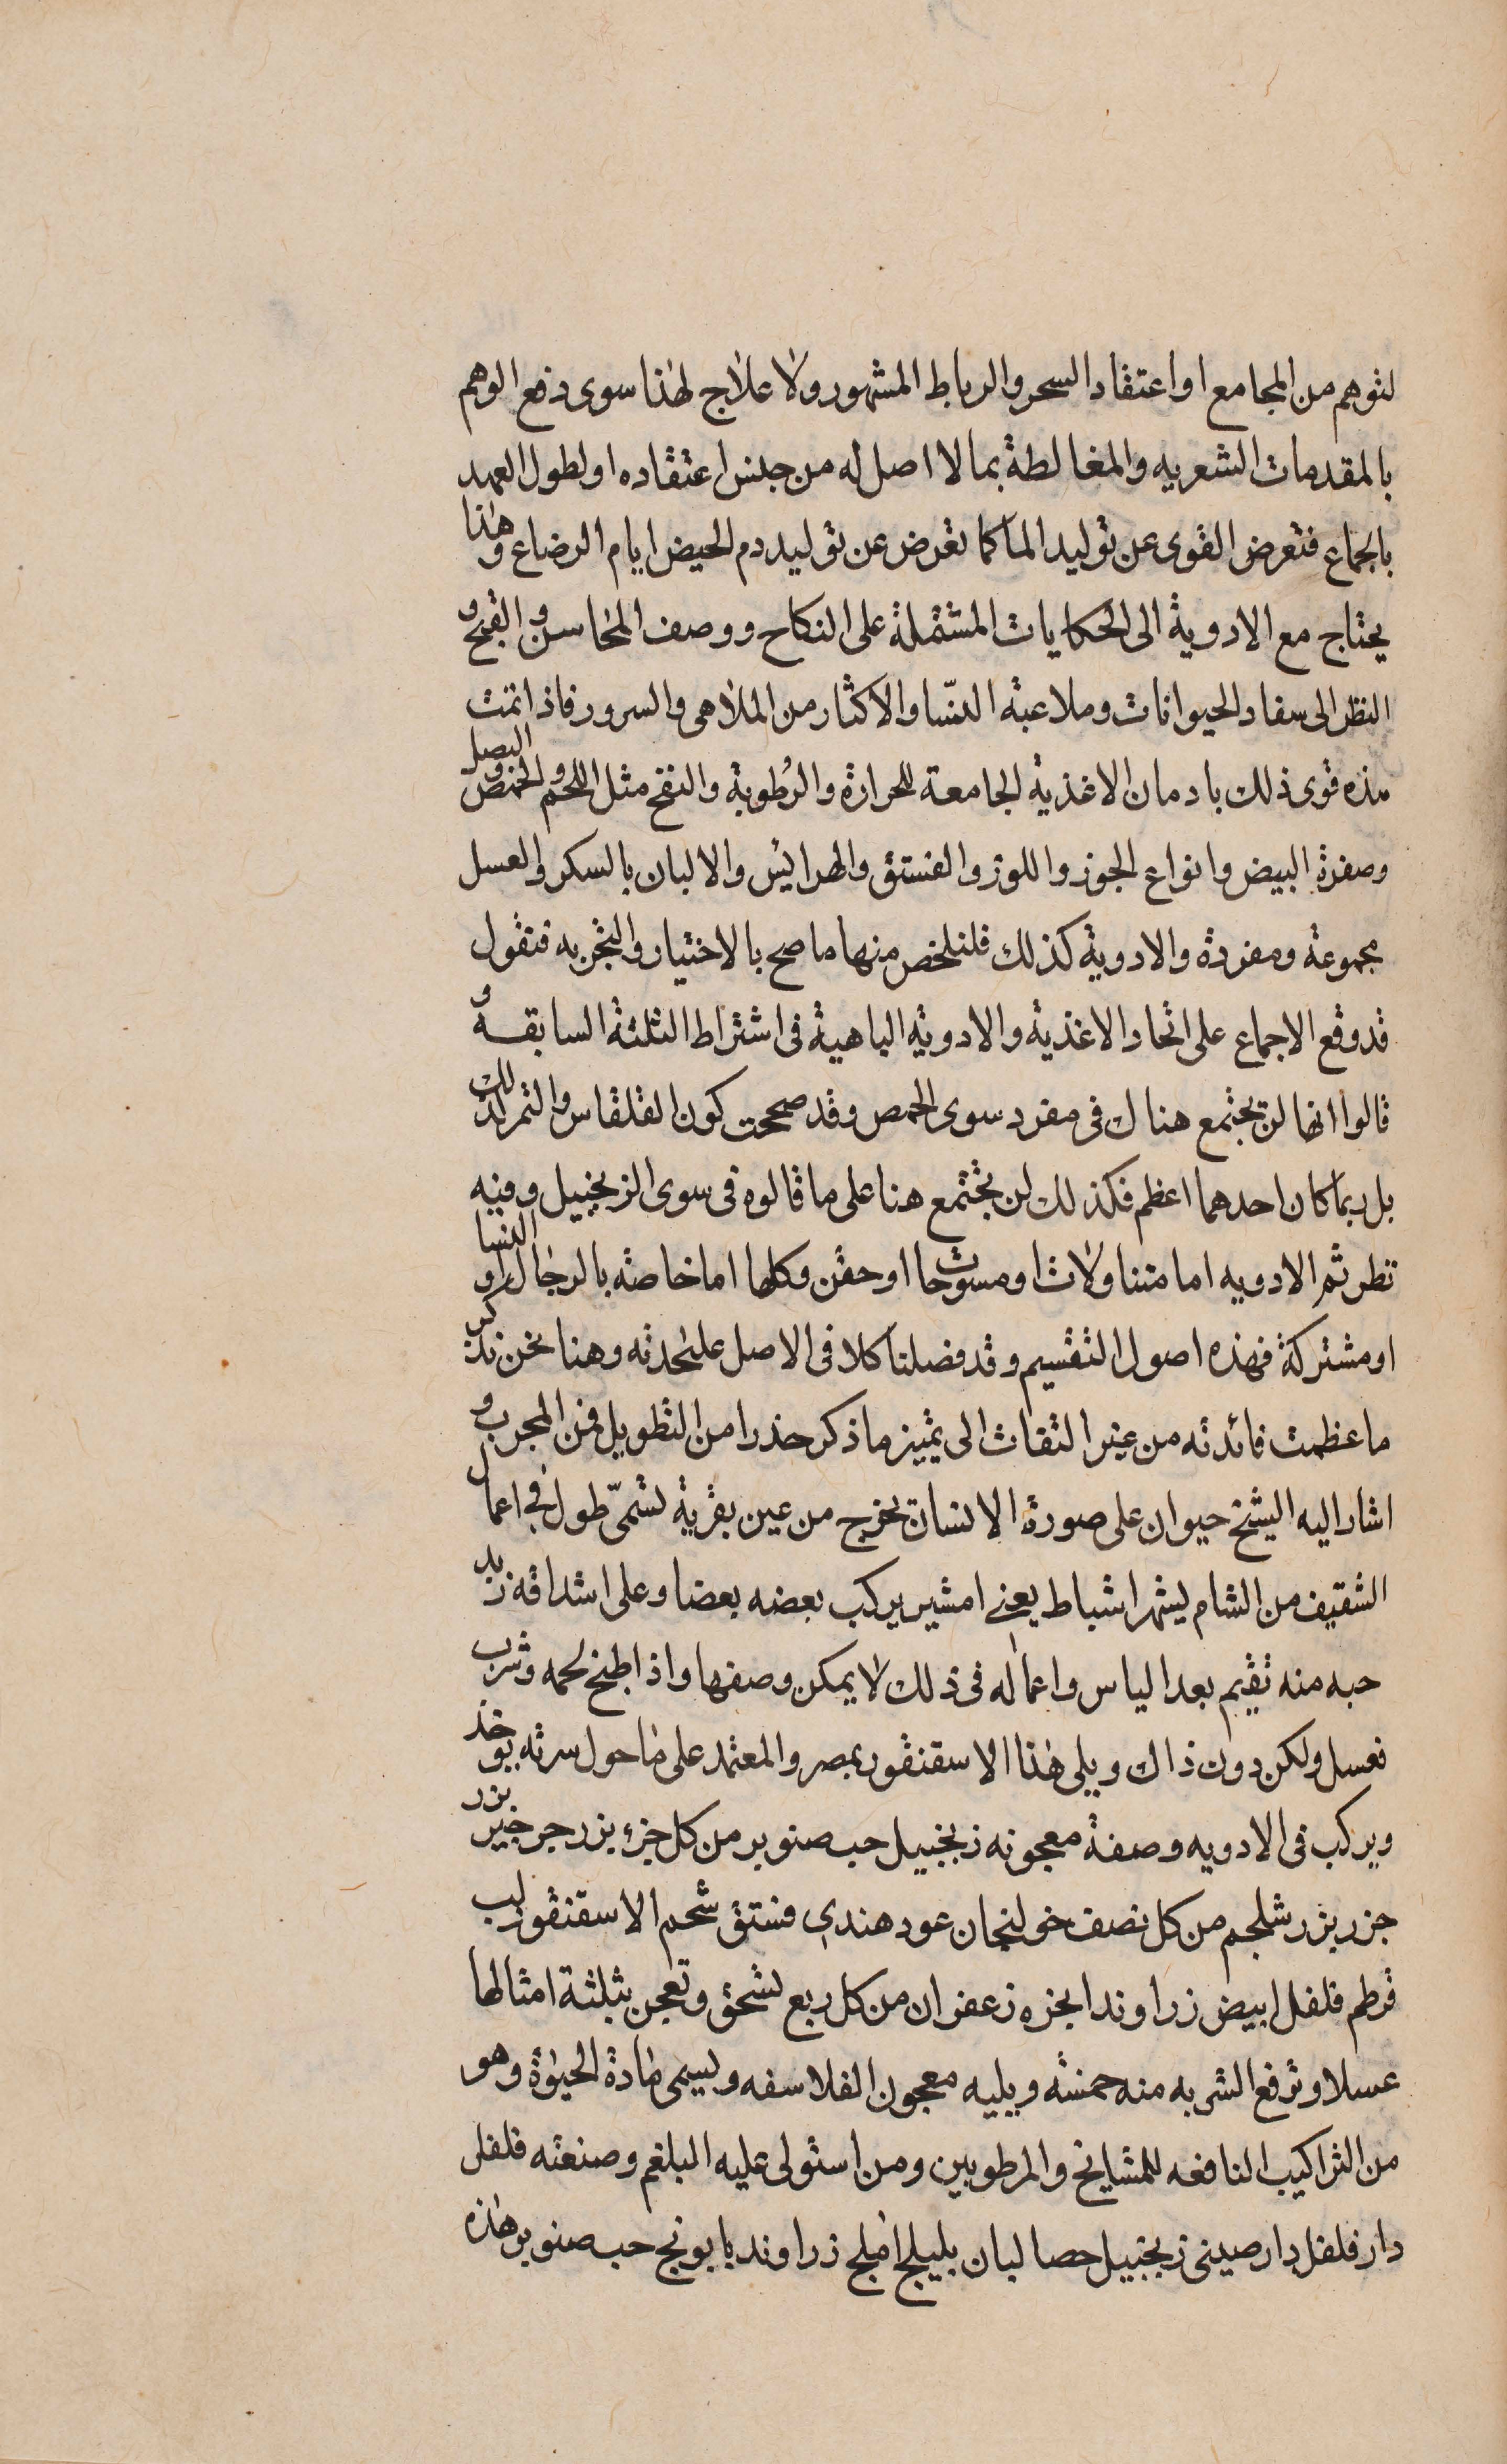 لتوهم من المجامع او اعتقاد السحر والرباط المشهور ولا علاج لهذا سوى دفع الوهم
بالمقدمات الشعريه والمغالطة بما لا اصل له من جنس اعتقاده او لطول العهد
بالجماع فتعرض القوى عن توليد الما كما تعرض عن توليد دم الحيض ايام الرضاع وهذا
يحتاج مع الادوية الى الحكايات المشتملة على النكاح ووصف المحاسن والقبح و
النظر الى سفاد الحيوانات وملاعبة النسا والاكثار من الملاهى والسرور فاذا تمت
هذه قوى ذلك بادمان الاغذية الجامعة للحرارة والرطوبة والنفخ مثل اللحم والحمص والبصل
وصفرة البيض وانواع الجوز واللوز والفستق والهرائس والالبان بالسكر والعسل
مجموعة ومفردة والادوية كذلك فلنلخص منها ما صح بالاختيار والتجربه فنقول
قد وقع الاجماع على اتحاد الاغذية والادوية الباهية فى اشتراط الثلثة السابقة و
قالوا انها لن تجتمع هناك فى مفرد سوى الحمص وقد صححت كون القلقاس والتمر كذلك
بل ربما كان احدهما اعظم فكذلك لن تجتمع هنا على ما قالوه فى سوى الزنجبيل وفيه
نظر ثم الادويه اما متناولات او مسوحات او حقن وكلها اما خاصة بالرجال او النسا
او مشتركة فهذه اصول التقسيم وقد فصلنا كلا فى الاصل على حدته وهنا نحن نذكر
ما عظمت فائدته من غير التفات الى تمييز ما ذكر حذرا من التطويل فمن المجرب و
اشار اليه الشيخ حيوان على صورة الانسان يخرج من عين بقرية تسمى طول فى اعمال
الشقيف من الشام بشهر اشباط يعنى امشير يركب بعضه بعضا وعلى اشداقه زبد
حبه منه تقيم بعد الياس واعماله فى ذلك لا يمكن وصفها واذا طبخ لحمه وشرب
فعسل ولكن دون ذاك ويلى هذا الاسقنقور بمصر والمعتمد على ما حول سرته يوخذ
ويركب فى الادويه وصفة معجونه زنجبيل حب صنوبر من كل جزء بزر جرجير بزر
جزر بزر شلجم من كل نصف خولنجان عود هندى فستق شحم الاسقنقور لب
قرطم فلفل ابيض زراوند ابجره زعفران من كل ربع تسحق وتعجن بثلثة امثالها
عسلا وترفع الشربه منه خمسة ويليه معجون الفلاسفه ويسمى مادة الحيوة وهو
من التراكيب النافعه للمشايخ والمرطوبين ومن استولى عليه البلغم وصنعته فلفل
دار فلفل دار صينى زنجبيل حصا لبان بليلج املج زراوند بابونج حب صنوبر هذه